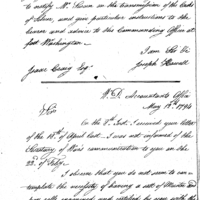 to notify Mr. Swan in the transmission of the Code
of Laws, and give particular instructions to the
bearer and advice to the Commanding Officer at
fort Washington.
I am Sir &c
Isaac Craig Esq. Joseph Howell
W. D. Accountants Office
May 13th, 1794
Sir
In the 7th Inst. I received your letter
of the 18th of April last. I was not informed of the
Secretary of War's communication to you in the
22d of Feby.
I observe that you do not seem to con-
template the necessity of having a set of Muster and